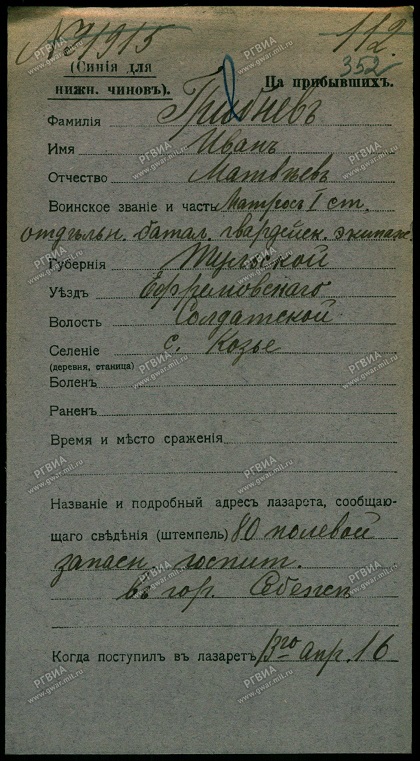 112
(Синія для На прибывшихъ.
нижн. чиновъ). 352
Фамилія Грибневъ
Имя Иванъ
Отчество Матвѣевъ
Воинское званіе и часть Матросъ I ст.
отдѣльн. батал. гвардейск. экипаж.
Губернія Тульской
Уѣздъ Ефремовскаго
Волость Солдатской
Селеніе с. Козье
(деревня, станица)
Боленъ
Раненъ
Время и мѣсто сраженія
Названіе и подробный адресъ лазарета, сообщаю-
щаго свѣдѣнія (штемпель) 80 полевой
запасн. госпит.
въ гор. Себежѣ
Когда поступилъ въ лазаретъ 13го апр. 16
РГВИА
www.gwar.mil.ru